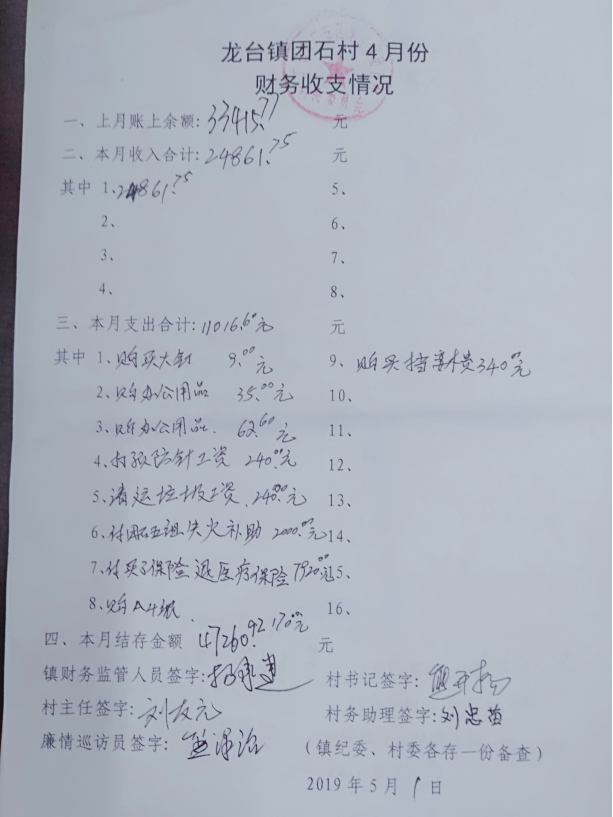 龙台镇团石村4月份
财务收支情况
一、上月账上余额:33415.77 元
二、本月收入合计:24861.75 元
其中 1、24861.75 5、
2、 6、
3、 7、
4、 8、
三、本月支出合计:11016.60元 元
其中 1、购买大针 9.00元 9、购买档案费340.00元
2、购办公用品 35.00元 10、
3、购办公用品. 62.60元 11、
4、打预防针工资 240.00元 12、
5、清运垃圾工资.240.00元 13、
6、付团石五组失火补助 2000.00元 14、
7、付买了保险退医疗保险7920.00元 15、
8、购A4纸 170.00元 16、
四、本月结存金额 47260.92 元
镇财务监管人员签字: 村书记签字:
村主任签字:刘友元 村务助理签字:刘忠
廉情巡访员签字:
(镇纪委、村委各存一份备查)
2019年5月1日